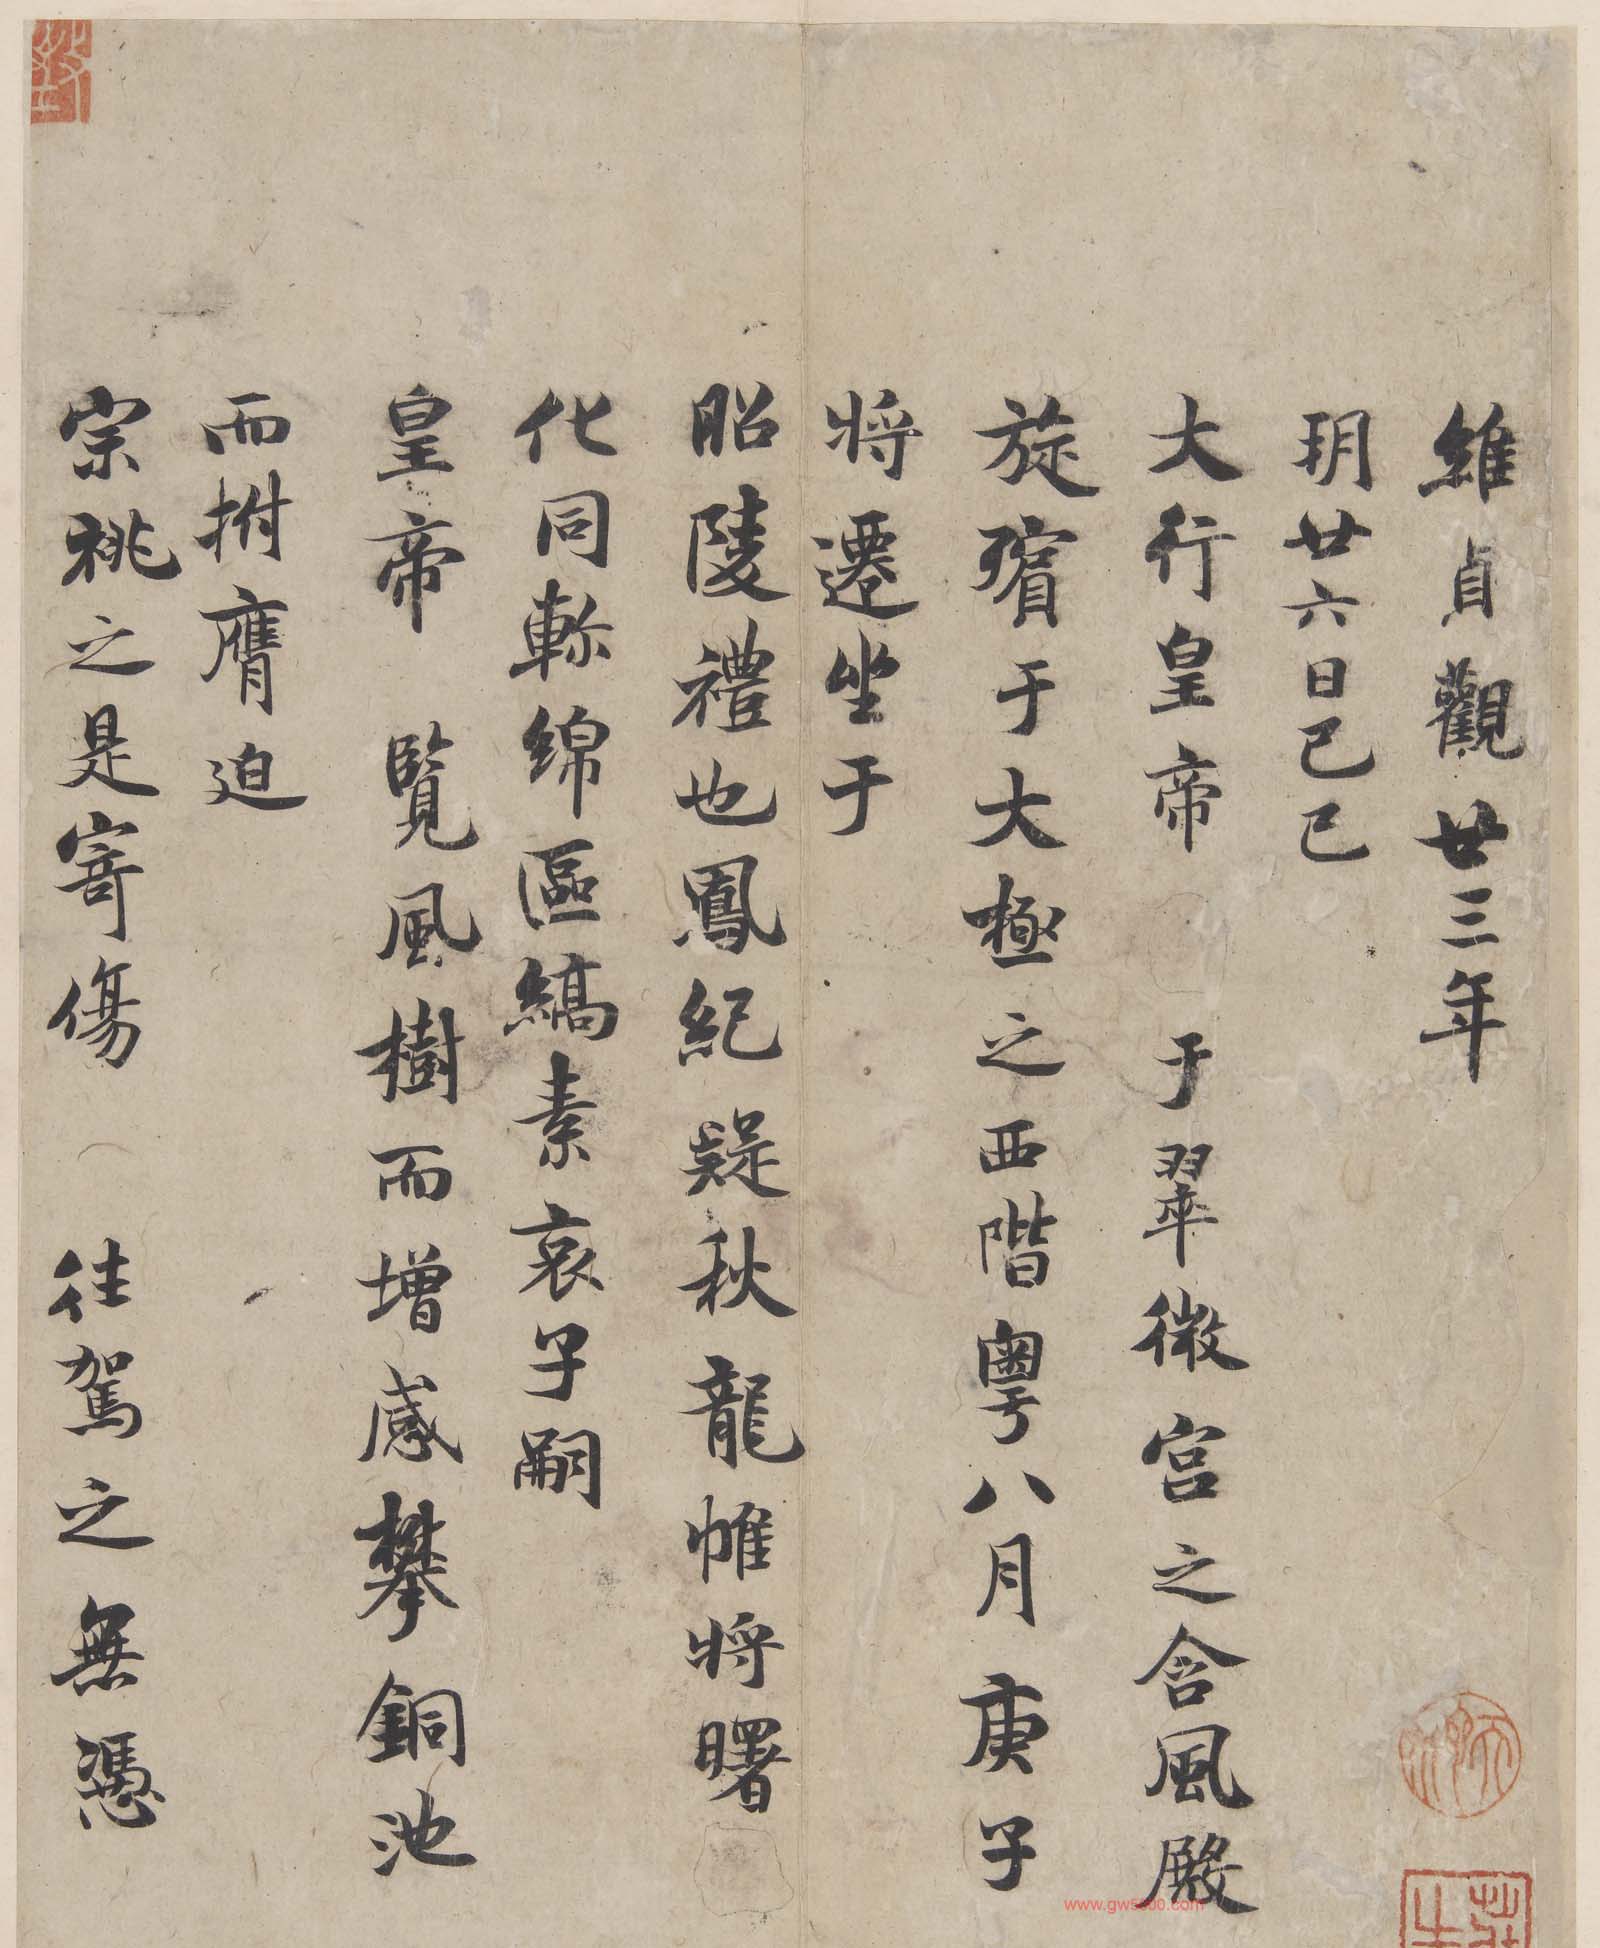 維貞觀廿三年
玥廿六日己巳
大行皇帝 于翠微宮之含風殿
旋殯于大極之西階粵八月庚子
將遷坐于
昭陵禮也鳳紀疑秋龍帷將曙
化同軫綿區縞素哀子嗣
皇帝 覽風樹而增感攀銅池
而拊膺迫
宗祧之是寄傷 往駕之無憑
www.gw5000.com